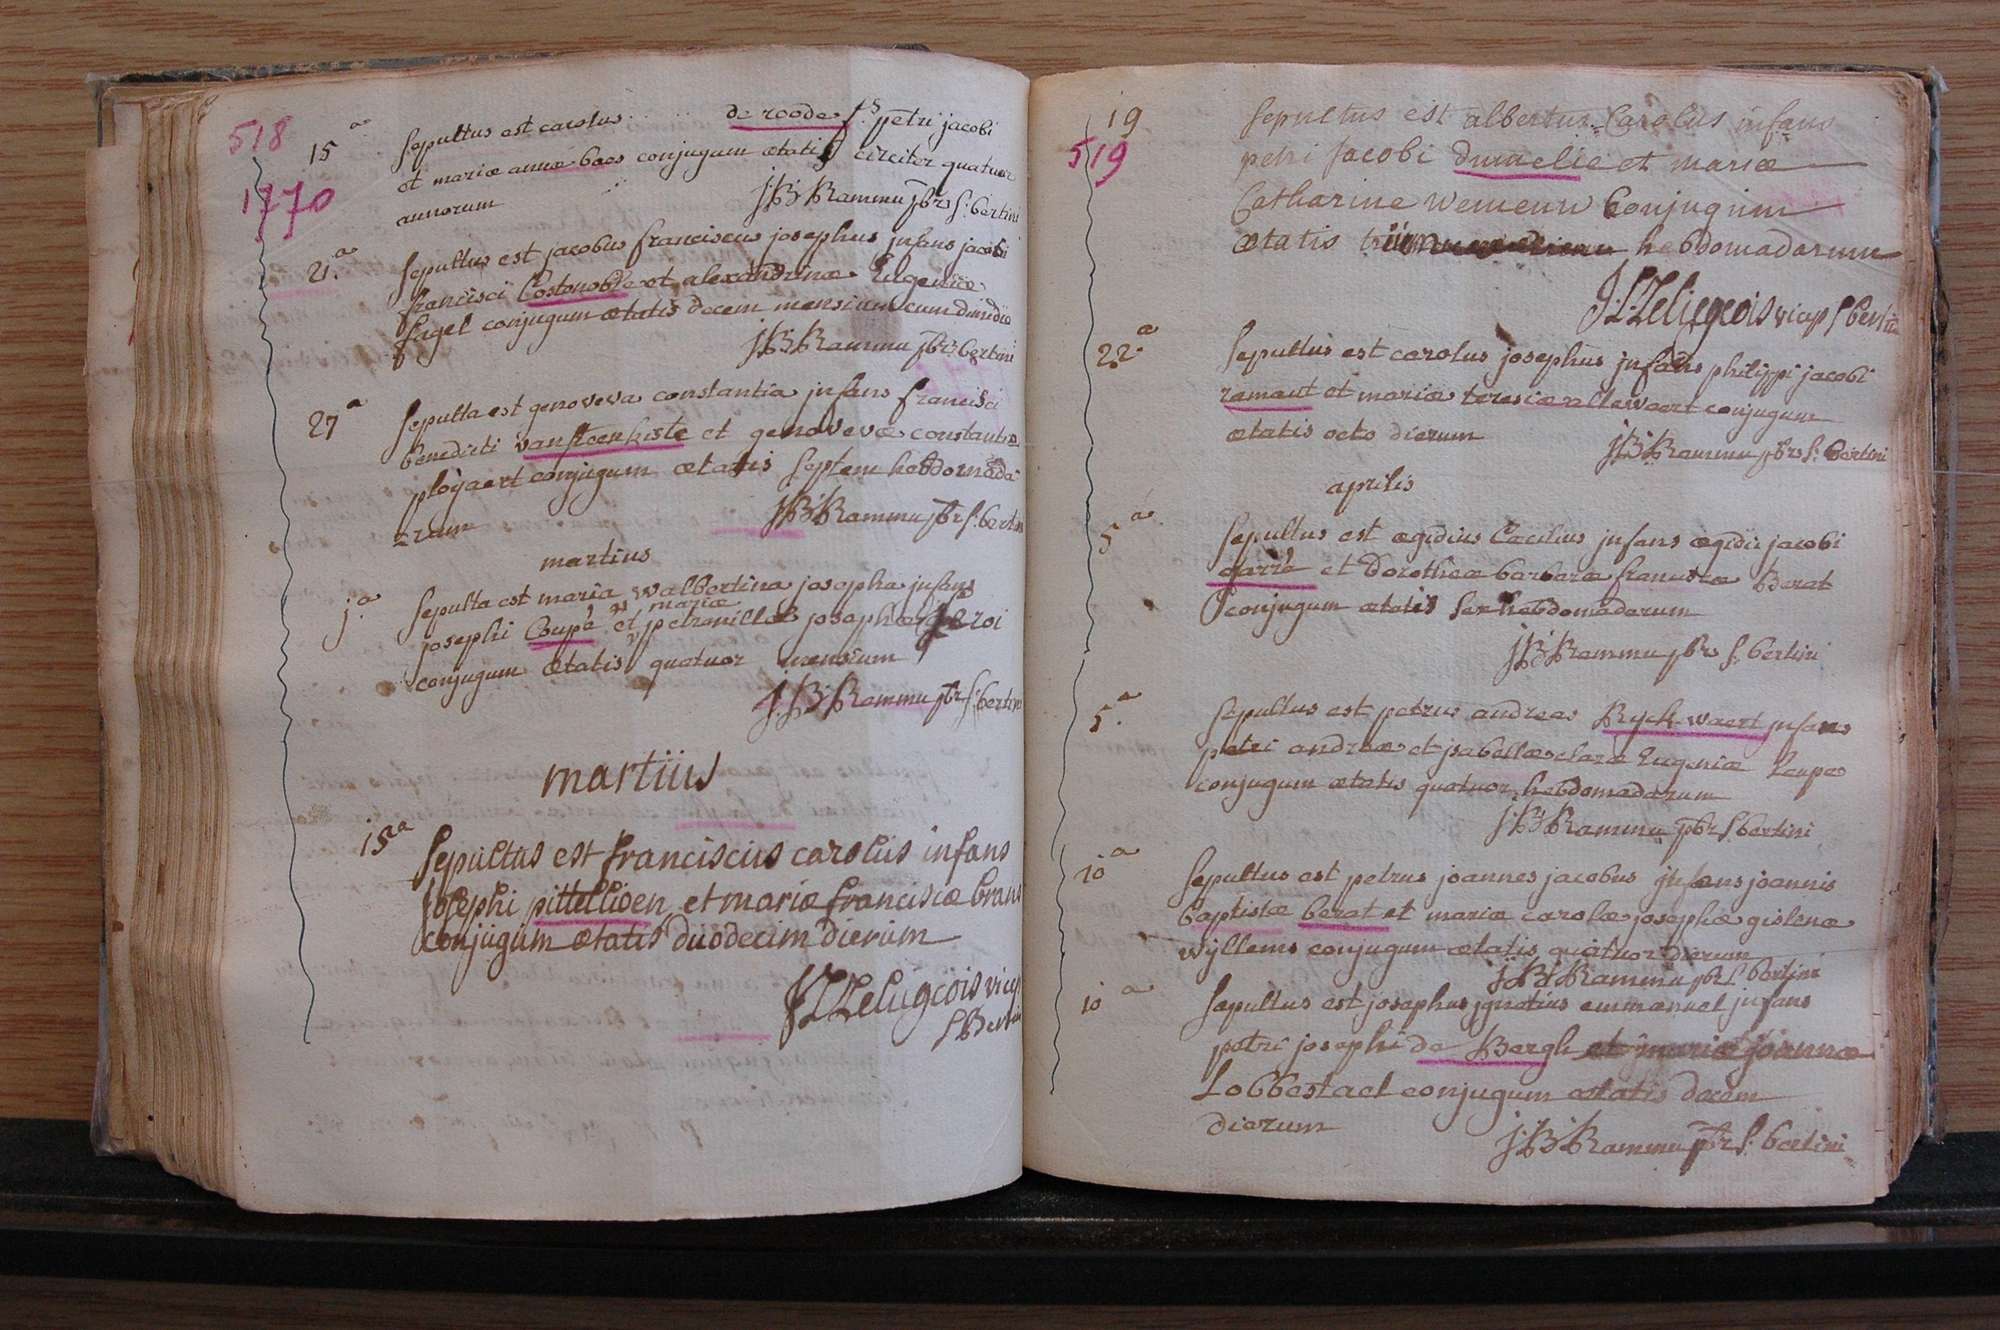 518
1770
15a Sepultus est carolus de roode fs petri jacobi
et mariæ annæ baes conjugum ætatis circiter quatuor
annorum
J:B: Rammu pbr S: bertini
21.a Sepultus est jacobus franciscus josephus infans jacobi
francisci Costenoble et alexandrinæ Eugeniæ
fagel conjugum ætatis decem mensium cum dimidio
J:B: Rammu pbr bertini
27a Sepulta est genoveva constantia infans francisci
benedicti vansteenkiste et genovevæ constantiæ
ployaert conjugum ætatis septem hebdomada
rum
J:B: Rammu pbr S: bertini
martius
j.a Sepulta est maria walbertina josepha infans
josephi Coupé et mariæ petronillæ josephæ roi
conjugum ætatis quatuor mensium
J:B: Rammu pbr S: bertini
martiius
15a Sepultus est franciscus carolus infans
Josephi pittellioen et mariæ franciscæ brans
conjugum ætatis duodecim dierum
J L Leliegeois vicep
S Bertin
519
19 Sepultus est albertus Carolus infans
petri Jacobi et mariæ
Catharine Conjugum
ætatis hebdomadarum
J:L Leliegeois vicep S berti
22.a Sepultus est carolus josephus infans philippi jacobi
ramaut et mariæ teresiæ allewaert conjugum
ætatis octo dierum
J:B: Rammu pbr S: Bertini
aprilis
5a Sepultus est ægidius Cæcilius infans ægidii jacobi
garré et Dorotheæ barbaræ franciscæ Berat
conjugum ætatis sex hebdomadarum
J:B: Rammu pbr S: bertini
5.a Sepultus est petrus andreas Ryckewaert infans
petri andreæ et isabellæ claræ Eugeniæ Leupe
conjugum ætatis quatuor hebdomadarum
J:B: Rammu pbr S bertini
10a Sepultus est petrus joannes jacobus infans joannis
baptistæ berat et mariæ carolæ josephæ gislenæ
wyllems conjugum ætatis quatuor dierum
J:B: Rammu pbr S bertini
10a Sepultus est josephus ignatius emmanuel infans
petri josephi de Bergh et mariæ joannæ
Lobbestael conjugum ætatis decem
dierum
J:B: Rammu pbr S: bertini